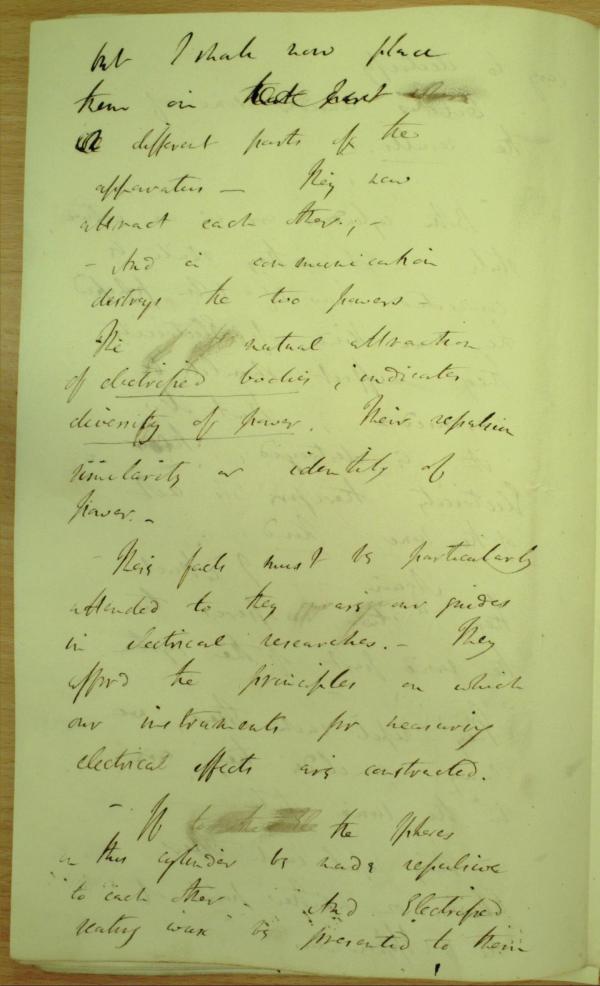 but I shall now place
them in
different parts of the
apparatus — They now
attract each other; –
– And a communication
destroys the two powers –
The mutual attraction
of electrified bodies; indicates
diversity of power. Their repulsion
similarity or identity of
power. –
– These facts must be particularly
attended to they are our guides
in electrical researches. – They
afford the principles on which
our instruments for measuring
electrical effects are constructed.
– If the Spheres
in this cylinder be made repulsive
to each other – And Electrified
sealing wax be presented to them